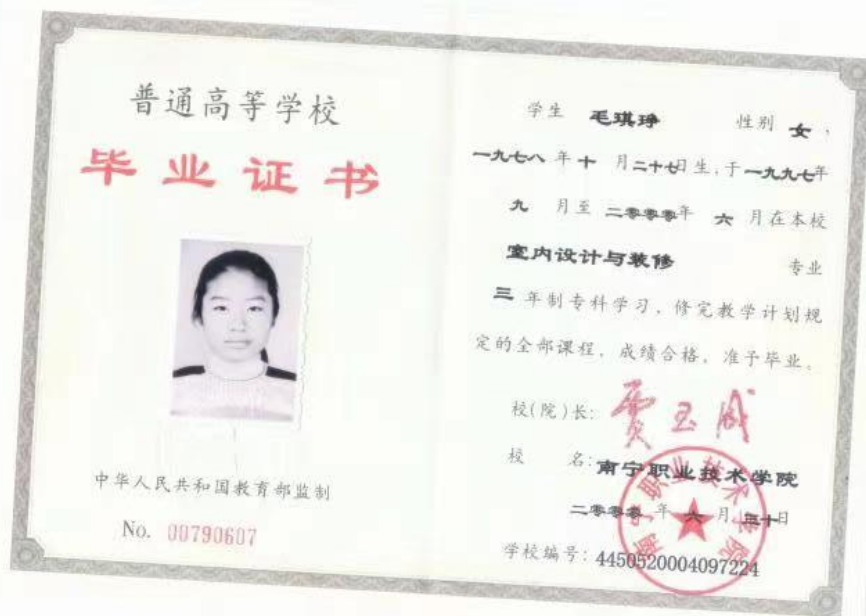 普通高等学校
毕业证书
中华人民共和国教育部监制
No. 00790607
学生 毛琪琤 性别 女，
一九七八年十月二十七日生，于一九九七年
九月至二零零零年六月在本校
室内设计与装修 专业
三年制专科学习，修完教学计划规
定的全部课程，成绩合格，准予毕业。
校(院)长：贾玉成
校 名：南宁职业技术学院
二零零零年六月三十日
学校编号：4450520004097224
南宁职业技术学院